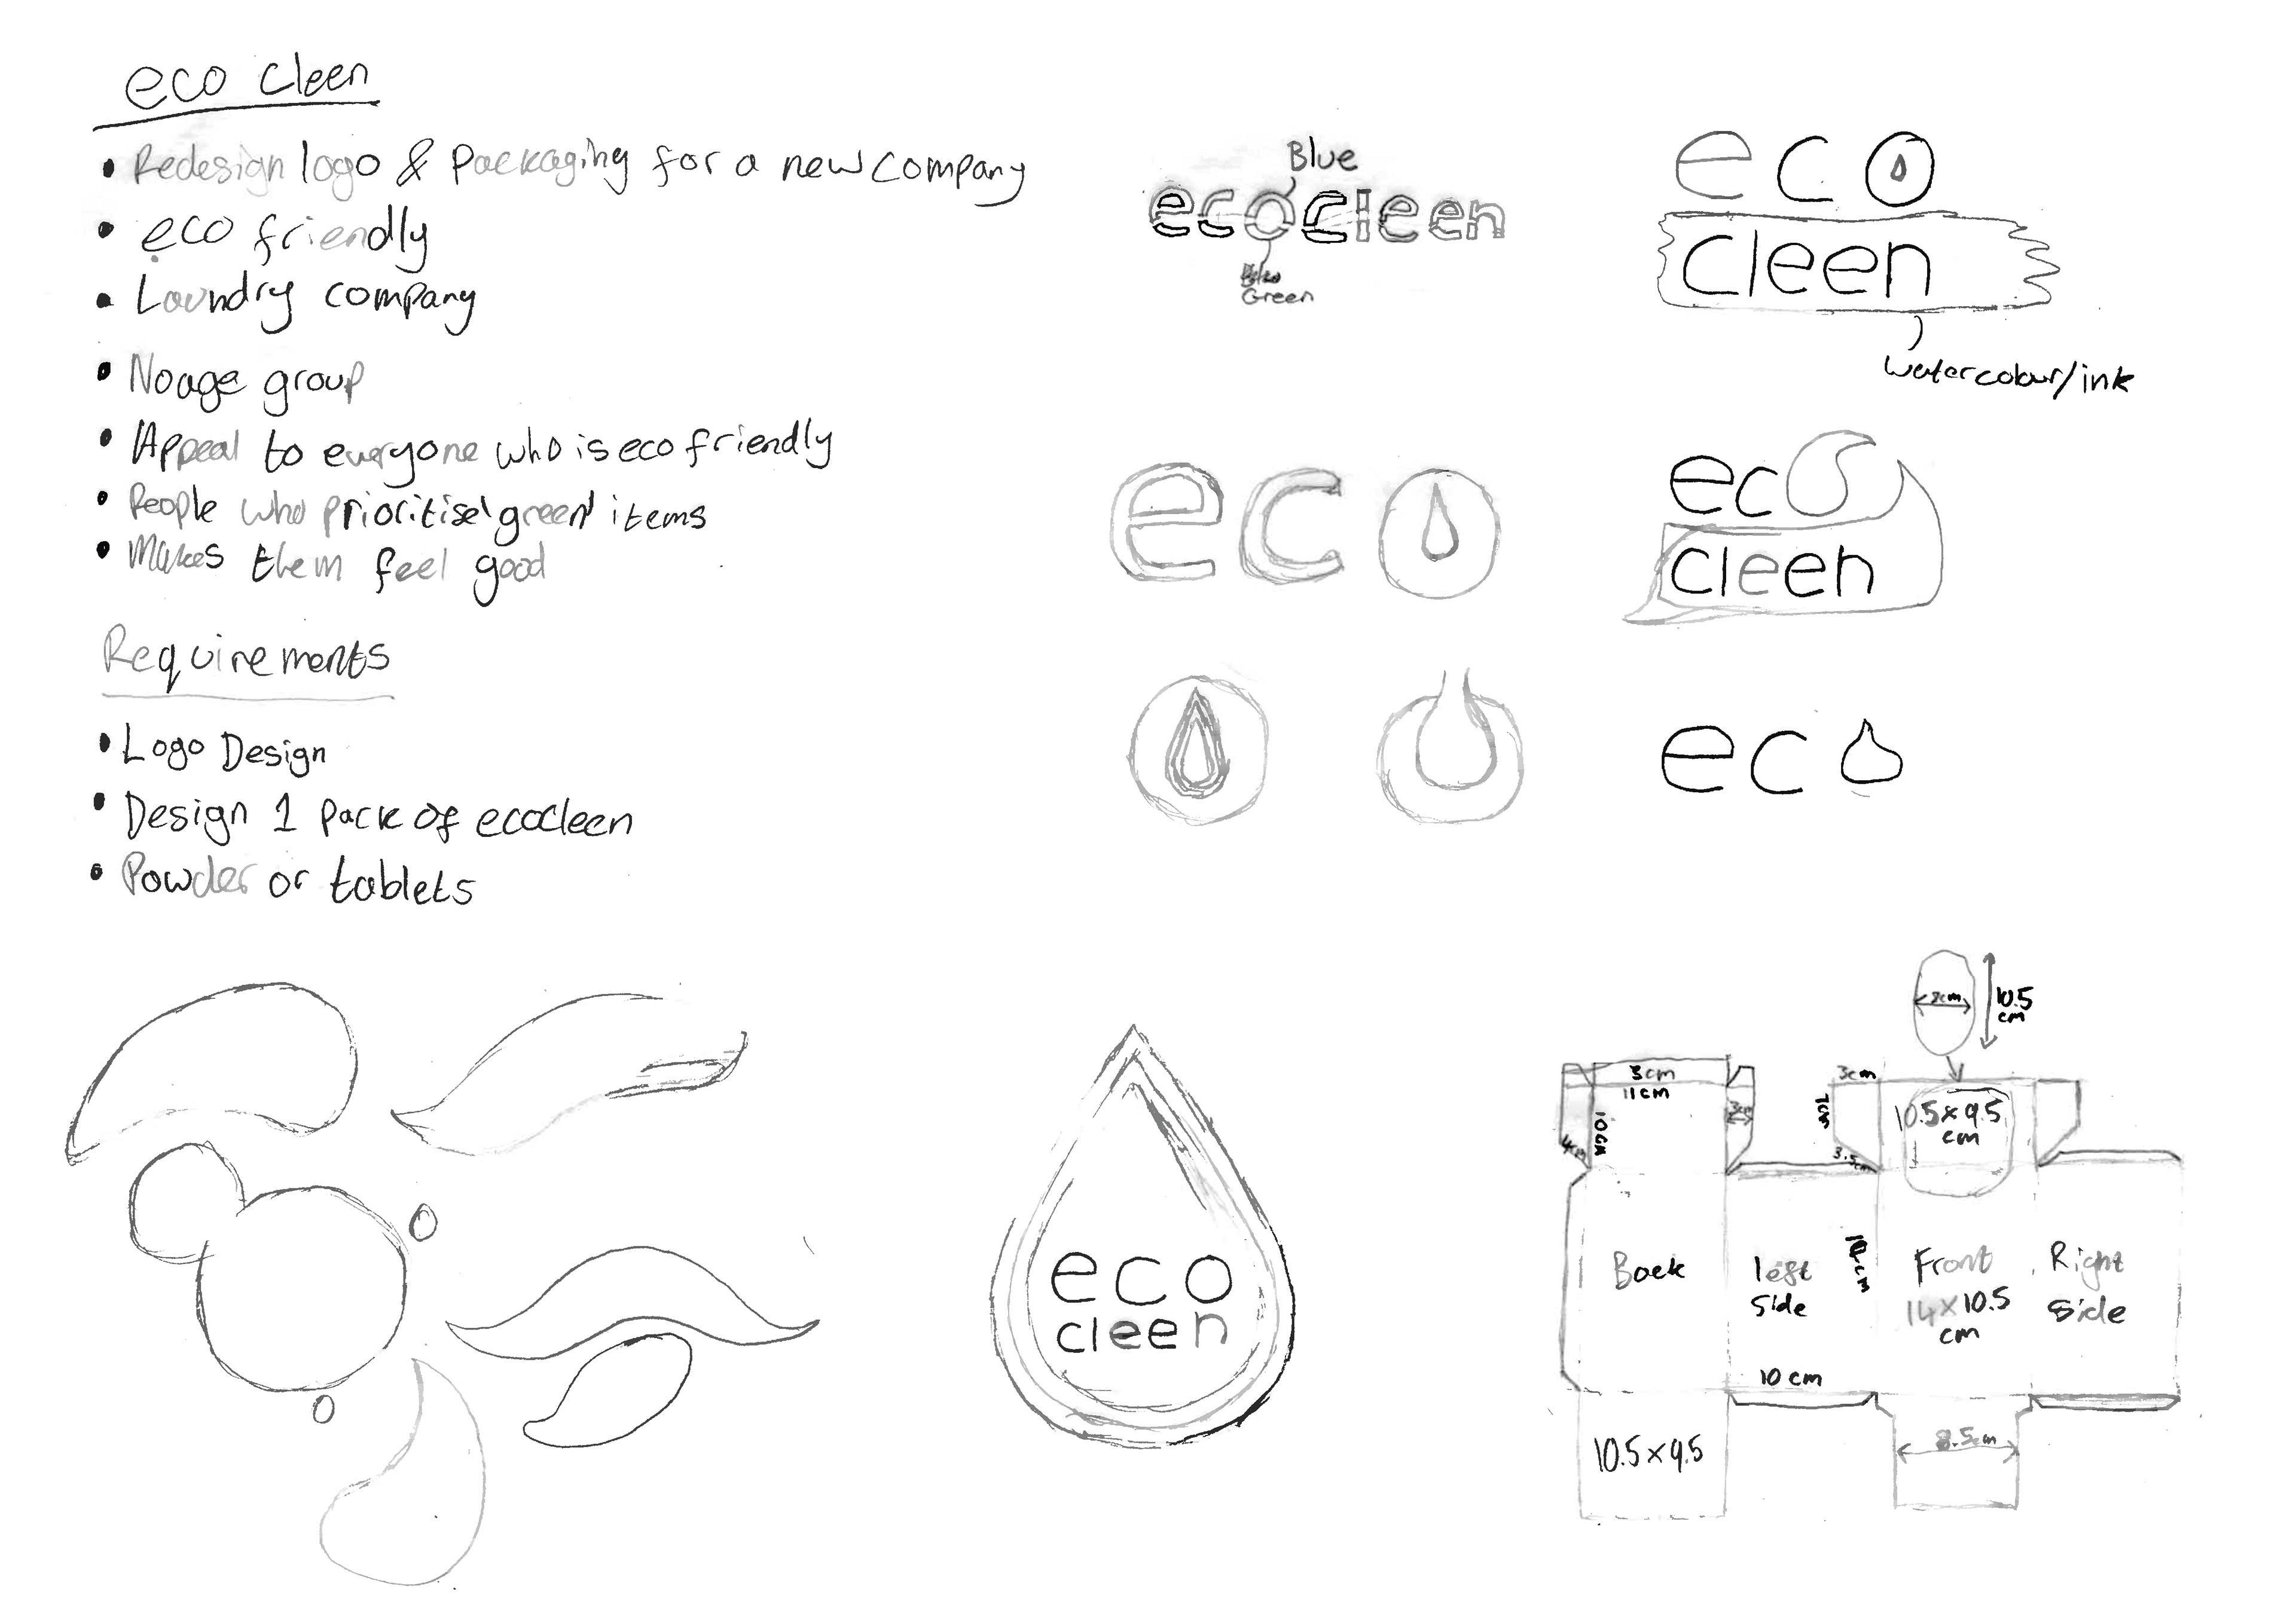 eco cleen
• Redesign logo & Packaging for a new company
• eco friendly
• Laundry company
• No age group
• Appeal to everyone who is eco friendly
• People who prioritise green items
• Makes them feel good
Requirements
• Logo Design
• Design 1 pack of ecocleen
• Powder or tablets
Blue
ecocleen
Green
eco
cleen
watercolour/ink
eco
eco
cleen
eco
eco
cleen
10.5
cm
3cm
11cm
10cm
4cm
3cm
3cm
7cm
3.5cm
10.5x9.5
cm
Back
left
Side
Front
14x10.5
cm
Right
Side
10 cm
10.5x9.5
8.5cm